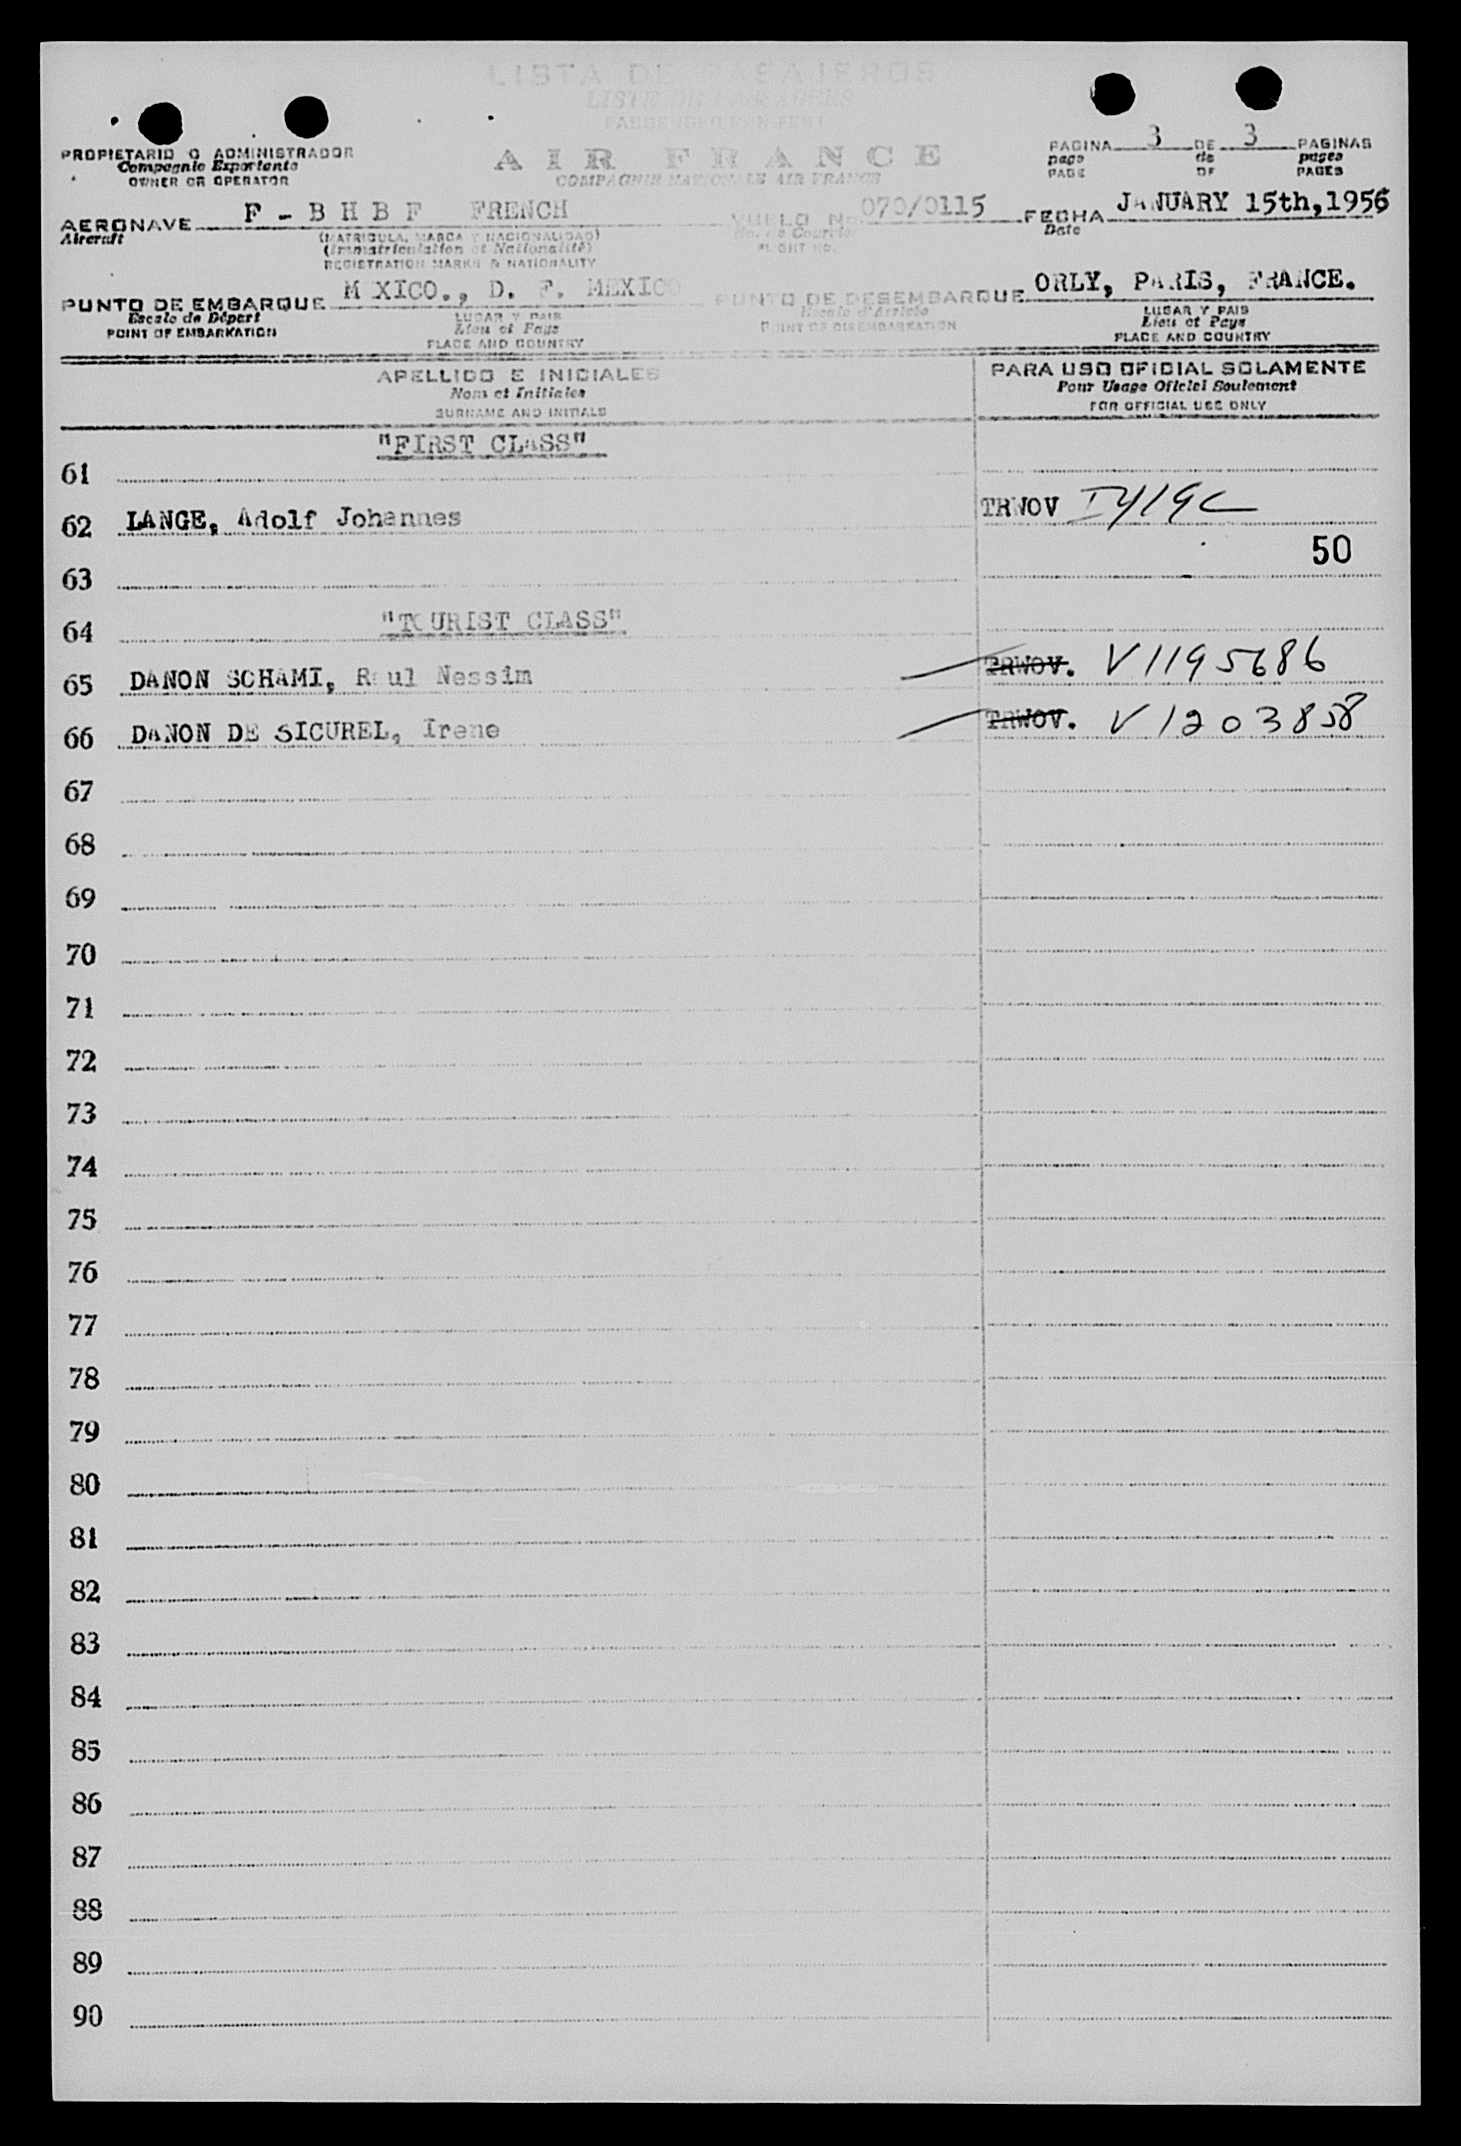 LISTA DE PASAJEROS
LISTE DE PASSAGERS
PASSENGER MANIFEST
AIR FRANCE
COMPAGNIE NATIONALE AIR FRANCE
PROPIETARIO O ADMINISTRADOR
Compagnie Exportante
OWNER OR OPERATOR
PAGINA 3 DE 3 PAGINAS
page de pages
PAGE OF PAGES
AERONAVE F - B H B F FRENCH VUELO No. 070/0115 FECHA JANUARY 15th,1956
Aircraft (MATRICULA, MARCA Y NACIONALIDAD) No. de Courrier Date
(Immatriculation et Nationalité) FLIGHT NO.
REGISTRATION MARKS & NATIONALITY
PUNTO DE EMBARQUE M XICO., D. F. MEXICO PUNTO DE DESEMBARQUE ORLY, PARIS, FRANCE.
Escale de Départ LUGAR Y PAIS Escale d'Arrivée LUGAR Y PAIS
POINT OF EMBARKATION Lieu et Pays POINT OF DISEMBARKATION Lieu et Pays
PLACE AND COUNTRY PLACE AND COUNTRY
APELLIDO E INICIALES PARA USO OFICIAL SOLAMENTE
Nom et Initiales Pour Usage Oficiel Seulement
SURNAME AND INITIALS FOR OFFICIAL USE ONLY
"FIRST CLASS"
61
62 LANGE, Adolf Johannes TRWOV
50
63
64 "TOURIST CLASS"
65 DANON SCHAMI, Raul Nessim TRWOV. V1195686
66 DANON DE SICUREL, Irene TRWOV. V1203858
67
68
69
70
71
72
73
74
75
76
77
78
79
80
81
82
83
84
85
86
87
88
89
90